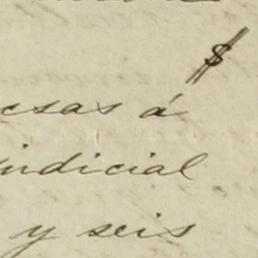 $
esas á
judicial
y seis